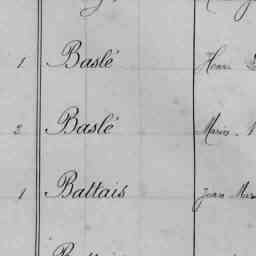 1 Baslé Henri
2 Baslé Marie
1 Battais Jean Mar